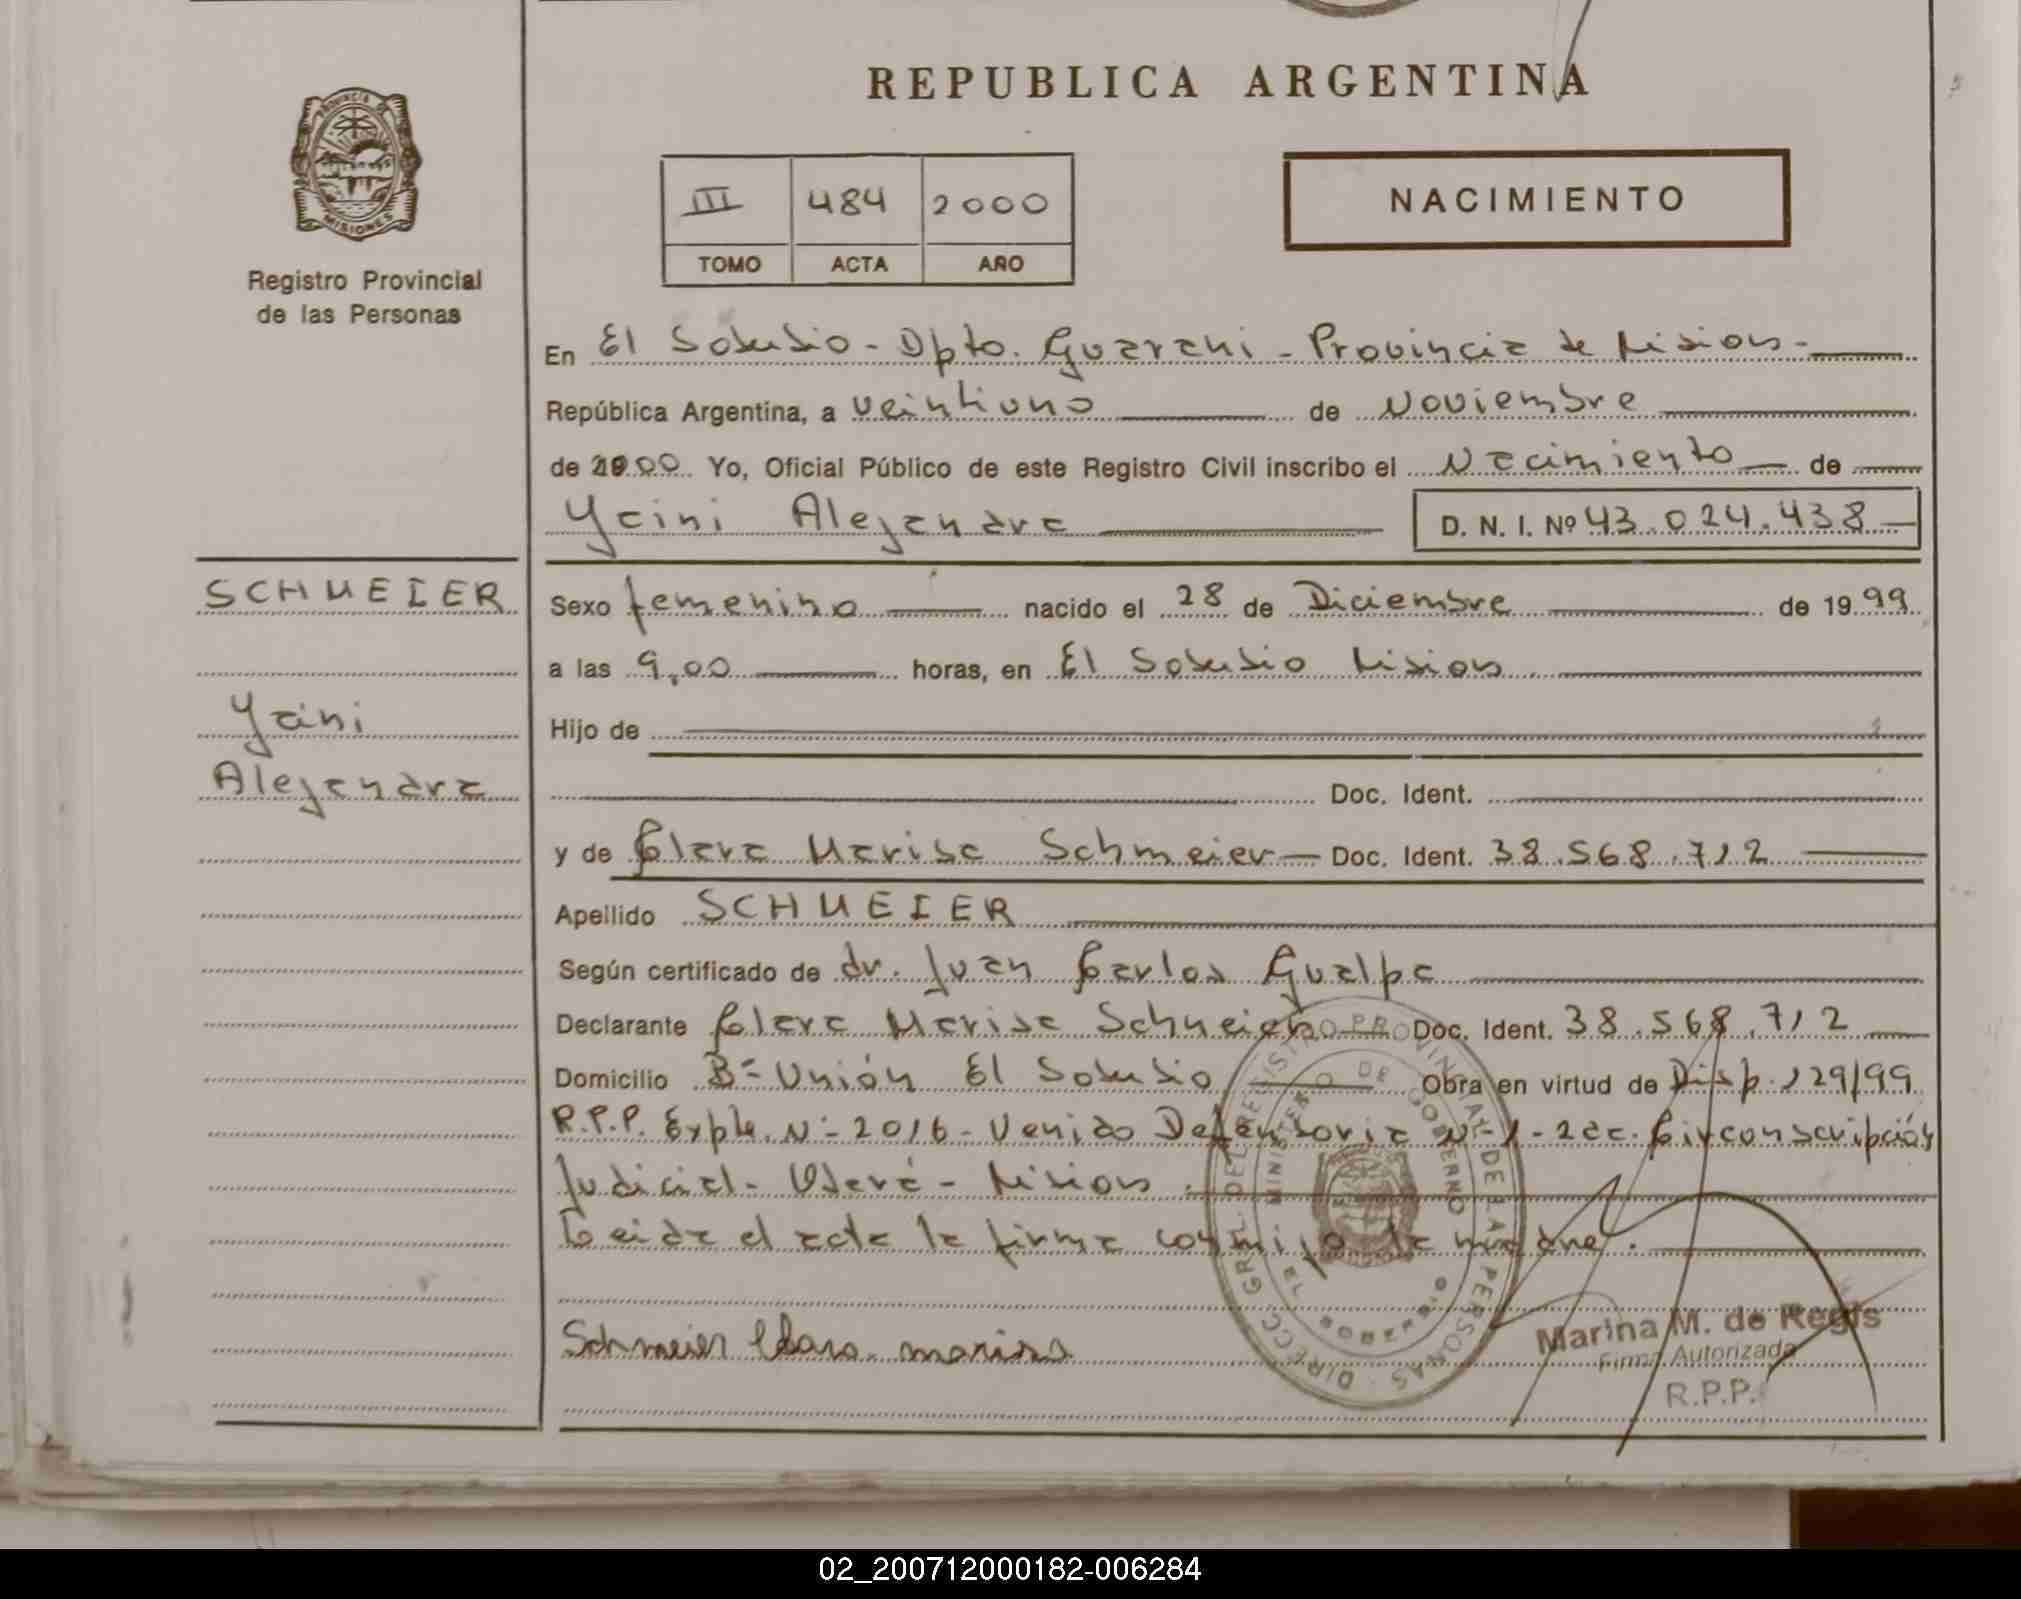 REPUBLICA ARGENTINA
PROVINCIA DE MISIONES
Registro Provincial
de las Personas
III 484 2000
TOMO ACTA AÑO
NACIMIENTO
En El Soberbio - Dpto. Guarani - Provincia de Misiones -
República Argentina, a veintiuno de Noviembre
de 2000 Yo, Oficial Público de este Registro Civil inscribo el Nacimiento de
Yaini Alejandra D. N. I. Nº 43.024.438
SCHMEIER
Yaini
Alejandra
Sexo femenino nacido el 28 de Diciembre de 1999
a las 9,00 horas, en El Soberbio Misiones
Hijo de
Doc. Ident.
y de Clara Marisa Schmeier Doc. Ident. 38.568.712
Apellido SCHMEIER
Según certificado de dr. Juan Carlos Gualpa
Declarante Clara Marisa Schmeier Doc. Ident. 38.568.712
Domicilio Bº Unión El Soberbio Obra en virtud de Disp. 129/99
R.P.P. Expte. Nº 2016 - Venido Defensoria Nº 1 - 2da. Circonscripción
Judicial - Oberá - Misiones.
Leida el acta la firma conmigo la madre.
Schmeier Clara marisa
DIRECC. GRL. DEL REGISTRO PROVINCIAL DE LAS PERSONAS
MINISTERIO DE GOBIERNO
EL SOBERBIO
Marina M. de Regis
Firma Autorizada
R.P.P.
02_200712000182-006284